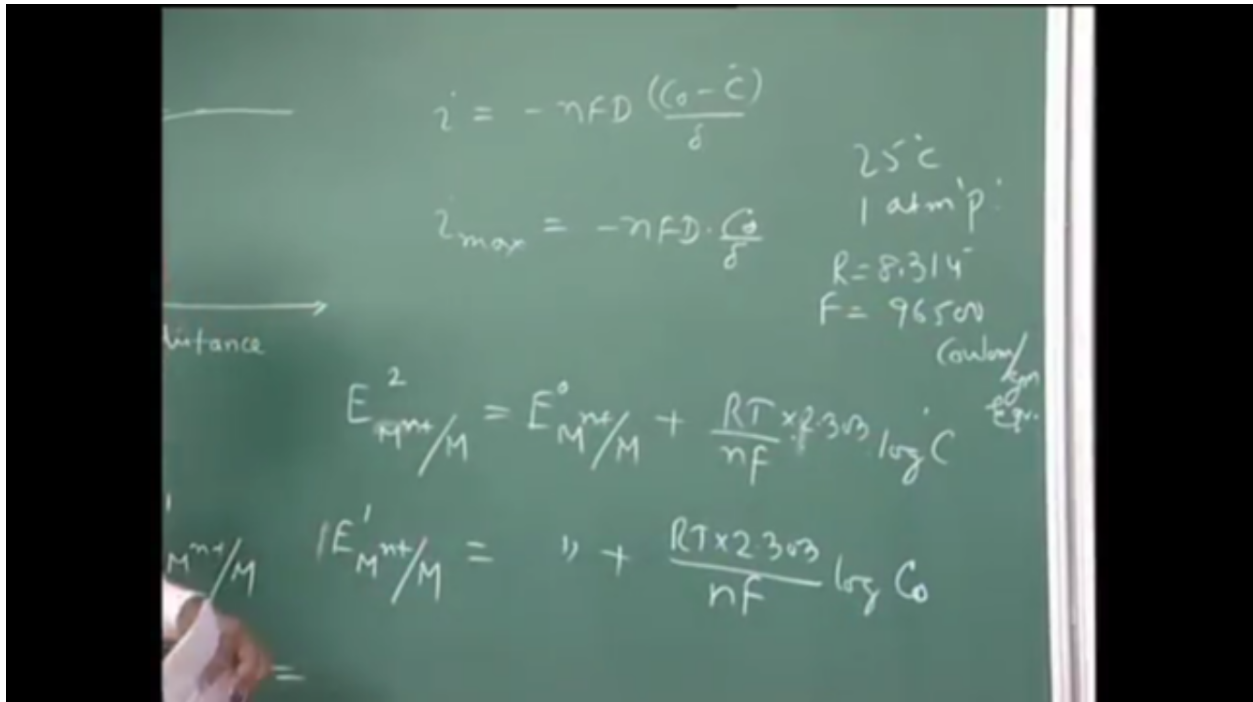 i = - nFD (C₀ - C)/δ
i max = - nFD . C₀/δ
25°C
1 atm 'p'
R = 8.314
F = 96500
Coulom/
gm
Eqv.
distance
E² Mⁿ⁺/M = E⁰ Mⁿ⁺/M + RT/nF × 2.303 log C
Mⁿ⁺/M
E¹ Mⁿ⁺/M = 〃 + RT × 2.303/nF log C₀
=